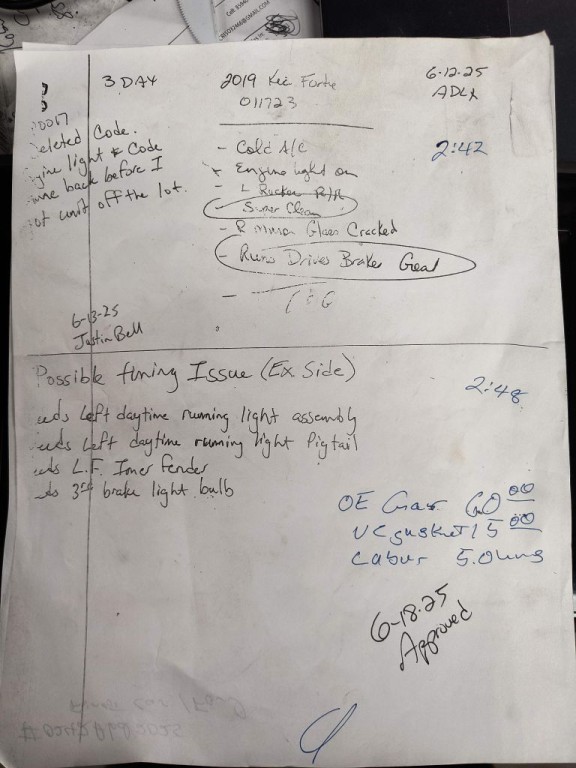 3 DAY
2019 Kia Forte
011723
6-12-25
ADLX
0017
eleted Code.
gine light & Code
ame back before I
ot unit off the lot.
- Cold A/C
2:42
Engine light on
- L Rocker R/R
- Super Clean
- R Mirror Glass Cracked
- Runs Drives Brakes Good
6-13-25
Justin Bell
Possible timing Issue (Ex Side)
2:48
eeds Left daytime running light assembly
eeds Left daytime running light Pigtail
eeds L.F. Inner Fender
eds 3rd brake light bulb
OE 60.00
VC gasket 15.00
Labor 5.0
6-18-25
Approved